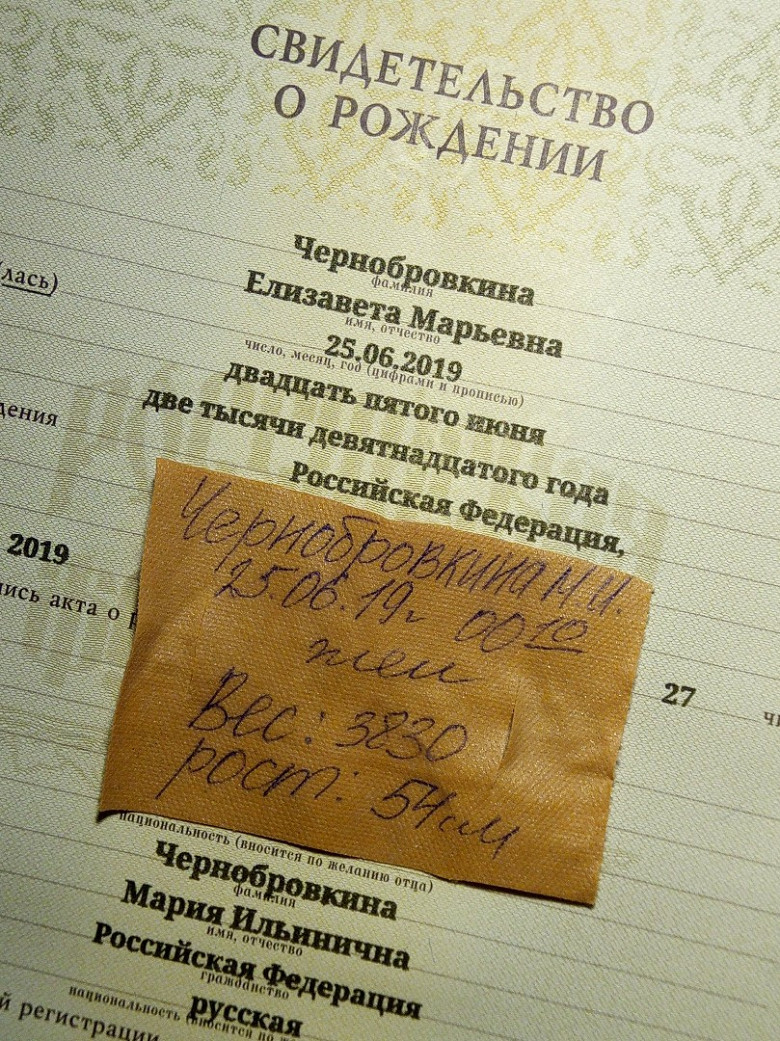 СВИДЕТЕЛЬСТВО
О РОЖДЕНИИ
Чернобровкина
фамилия
лась)
Елизавета Марьевна
имя, отчество
25.06.2019
число, месяц, год (цифрами и прописью)
двадцать пятого июня
дения
две тысячи девятнадцатого года
Российская Федерация,
Чернобровкина М.И.
25.06.19г 00 10
жен
Вес: 3830
рост: 54см
2019
ись акта о р
27
национальность (вносится по желанию отца)
Чернобровкина
фамилия
Мария Ильинична
имя, отчество
Российская Федерация
гражданство
русская
национальность (вносится по
й регистрации